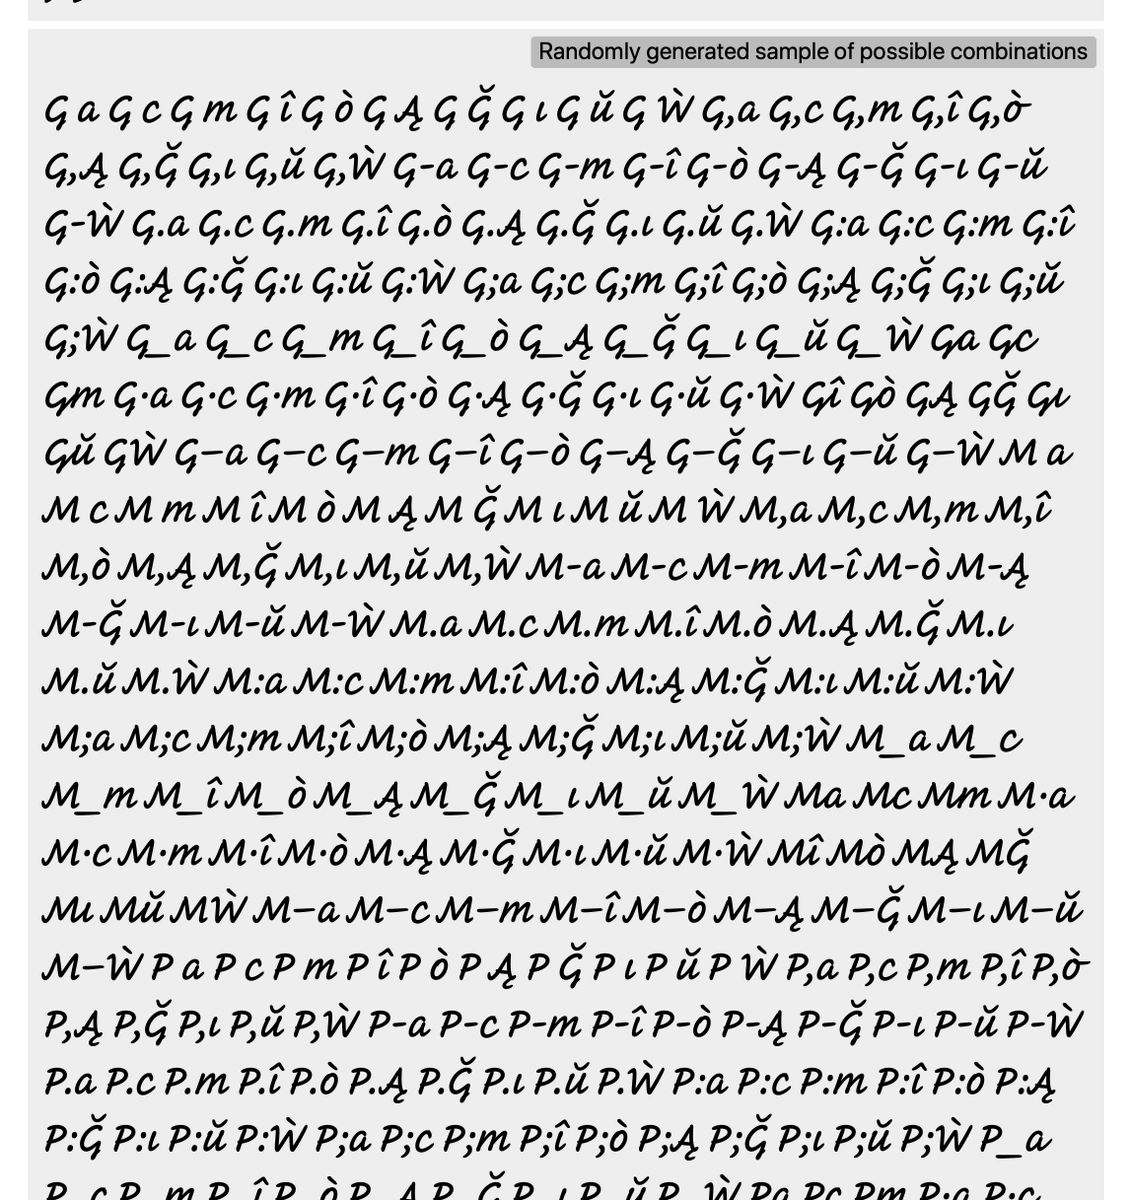 Randomly generated sample of possible combinations
G a G c G m G î G ò G Ą G Ğ G ı G ŭ G Ẁ G,a G,c G,m G,î G,ò
G,Ą G,Ğ G,ı G,ŭ G,Ẁ G-a G-c G-m G-î G-ò G-Ą G-Ğ G-ı G-ŭ
G-Ẁ G.a G.c G.m G.î G.ò G.Ą G.Ğ G.ı G.ŭ G.Ẁ G:a G:c G:m G:î
G:ò G:Ą G:Ğ G:ı G:ŭ G:Ẁ G;a G;c G;m G;î G;ò G;Ą G;Ğ G;ı G;ŭ
G;Ẁ G_a G_c G_m G_î G_ò G_Ą G_Ğ G_ı G_ŭ G_Ẁ Ga Gc
Gm G·a G·c G·m G·î G·ò G·Ą G·Ğ G·ı G·ŭ G·Ẁ Gî Gò GĄ GĞ Gı
Gŭ GẀ G–a G–c G–m G–î G–ò G–Ą G–Ğ G–ı G–ŭ G–Ẁ M a
M c M m M î M ò M Ą M Ğ M ı M ŭ M Ẁ M,a M,c M,m M,î
M,ò M,Ą M,Ğ M,ı M,ŭ M,Ẁ M-a M-c M-m M-î M-ò M-Ą
M-Ğ M-ı M-ŭ M-Ẁ M.a M.c M.m M.î M.ò M.Ą M.Ğ M.ı
M.ŭ M.Ẁ M:a M:c M:m M:î M:ò M:Ą M:Ğ M:ı M:ŭ M:Ẁ
M;a M;c M;m M;î M;ò M;Ą M;Ğ M;ı M;ŭ M;Ẁ M_a M_c
M_m M_î M_ò M_Ą M_Ğ M_ı M_ŭ M_Ẁ Ma Mc Mm M·a
M·c M·m M·î M·ò M·Ą M·Ğ M·ı M·ŭ M·Ẁ Mî Mò MĄ MĞ
Mı Mŭ MẀ M–a M–c M–m M–î M–ò M–Ą M–Ğ M–ı M–ŭ
M–Ẁ P a P c P m P î P ò P Ą P Ğ P ı P ŭ P Ẁ P,a P,c P,m P,î P,ò
P,Ą P,Ğ P,ı P,ŭ P,Ẁ P-a P-c P-m P-î P-ò P-Ą P-Ğ P-ı P-ŭ P-Ẁ
P.a P.c P.m P.î P.ò P.Ą P.Ğ P.ı P.ŭ P.Ẁ P:a P:c P:m P:î P:ò P:Ą
P:Ğ P:ı P:ŭ P:Ẁ P;a P;c P;m P;î P;ò P;Ą P;Ğ P;ı P;ŭ P;Ẁ P_a
P_c P_m P_î P_ò P_Ą P_Ğ P_ı P_ŭ P_Ẁ Pa Pc Pm P·a P·c